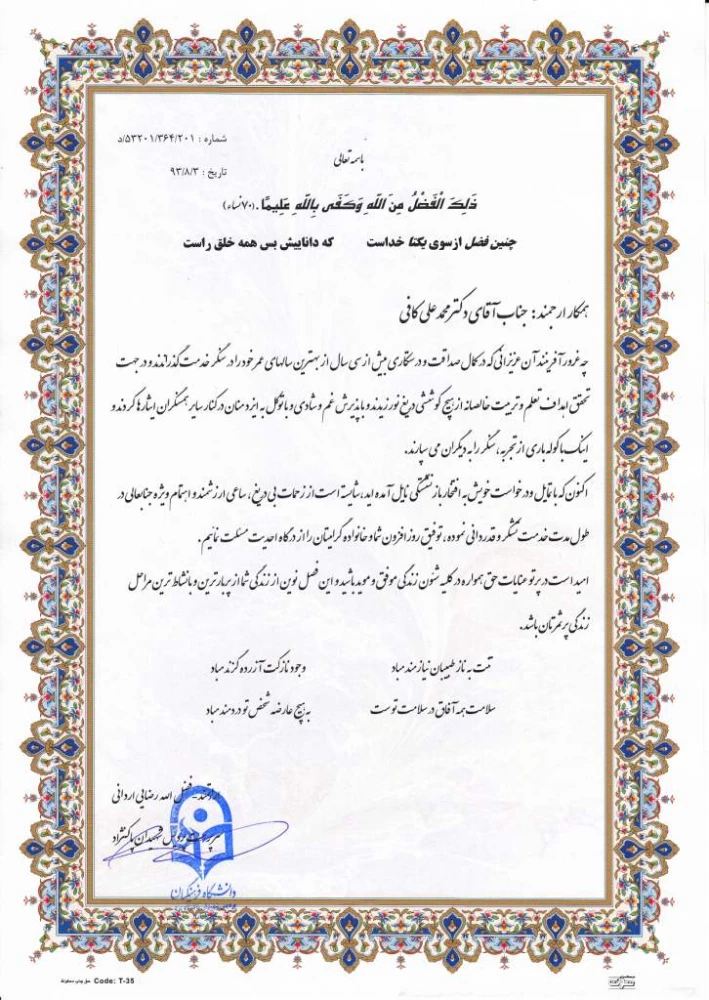 شماره : ۵۳۲۰۱/۳۶۴/۲۰۱/د
باسمه تعالی
تاریخ : ۹۳/۸/۳
ذَلِكَ الْفَضْلُ مِنَ اللّهِ وَكَفَى بِاللّهِ عَلِيمًا. (۷۰نساء)
چنین فضل از سوی یکتا خداست که داناییش بس همه خلق راست
همکار ارجمند : جناب آقای دکتر محمد علی کافی
چه غرور آفرینند آن عزیزانی که در کمال صداقت و درستکاری بیش از سی سال از بهترین سالهای عمر خود را در سنگر خدمت گذراندند و در جهت
تحقق اهداف تعلیم و تربیت خالصانه از هیچ کوششی دریغ نورزیدند و با پذیرش غم و شادی و با توکل به ایزد منان در کنار سایر همسنگران ایثارها کردند و
اینک با کوله باری از تجربه، سنگر را به دیگران می سپارند.
اکنون که با تمایل و درخواست خویش به افتخار بازنشستگی نایل آمده اید، شایسته است از زحمات بی دریغ، مساعی ارزشمند و اهتمام ویژه جنابعالی در
طول مدت خدمت تشکر و قدردانی نموده، توفیق روز افزون شما و خانواده گرامیتان را از درگاه احدیت مسئلت نمائیم.
امید است در پرتو عنایات حق همواره در کلیه شئون زندگی موفق و موید باشید و این فصل نوین از زندگی شما از پربارترین و بانشاط ترین مراحل
زندگی پر ثمرتان باشد.
تنت به ناز طبیبان نیازمند مباد وجود نازکت آزرده گزند مباد
سلامت همه آفاق در سلامت توست به هیچ عارضه شخص تو دردمند مباد
ارادتمند - فضل الله رضایی اردانی
سرپرست پردیس شهیدان پاکنژاد
دانشگاه فرهنگیان
Code: T-35